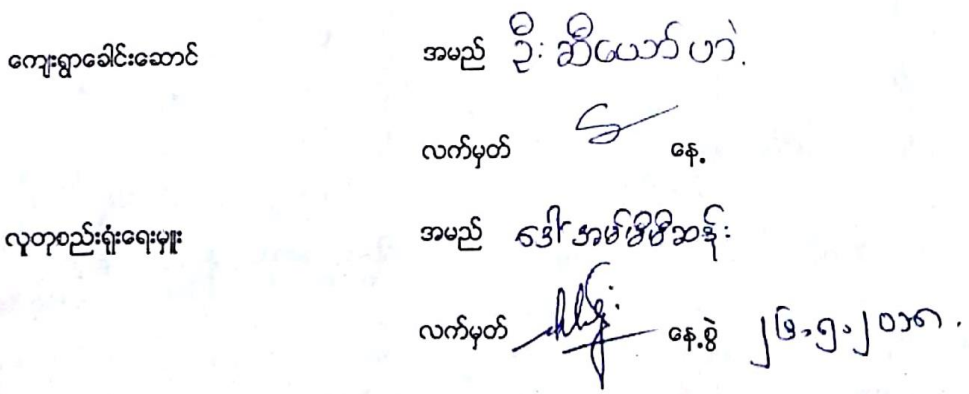 ကျေးရွာခေါင်းဆောင် အမည် ဦး ဆီယော်ဟာဲ.
လက်မှတ် နေ့
လူတုစည်းရုံးရေးမှူး အမည် ဒေါ်အဖ်မီမီဆန်း
လက်မှတ် နေ့စွဲ ၂၆.၅.၂၀၁၈.